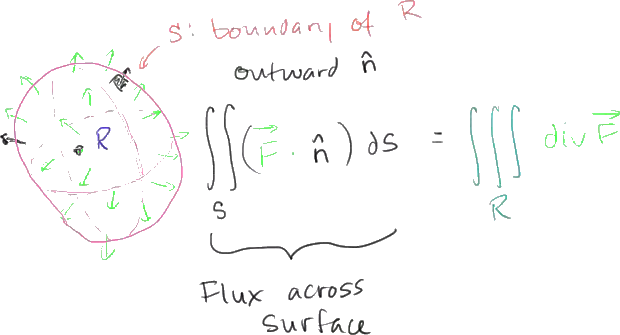 S: boundary of R
outward n̂
R
∬_S (F⃗ · n̂) dS = ∭_R div F⃗
Flux across
surface